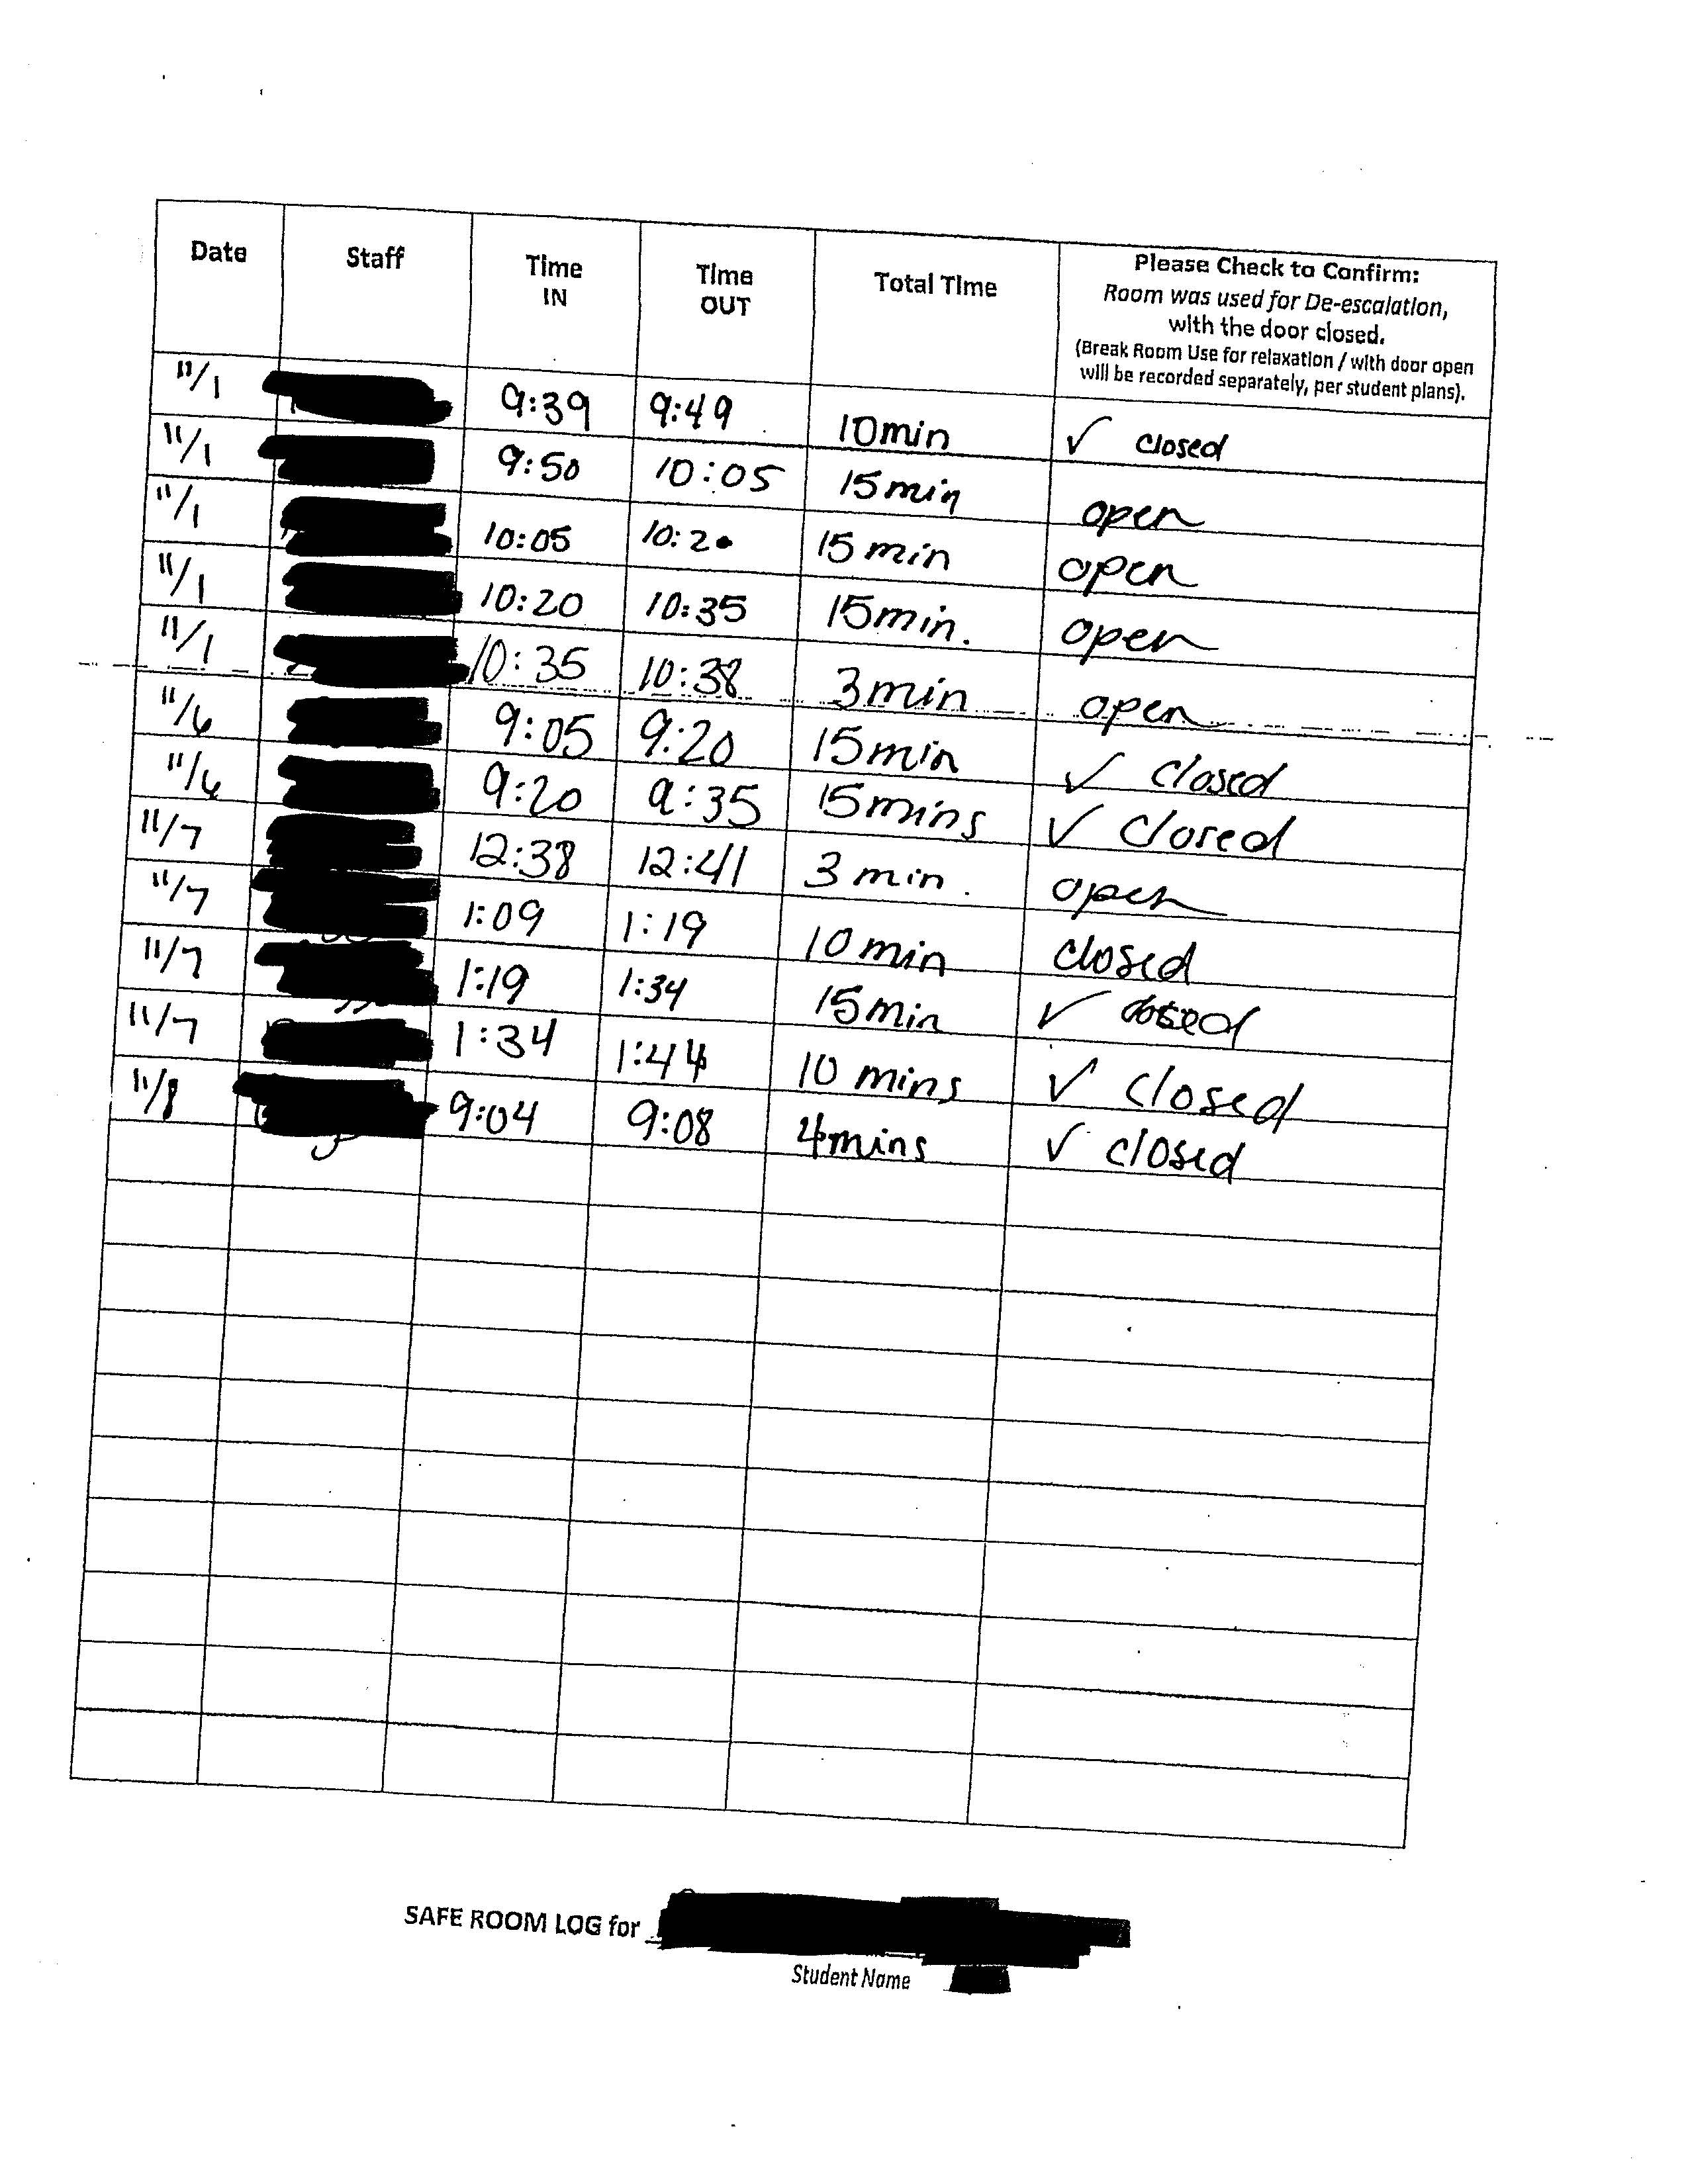 Date Staff Time IN Time OUT Total Time Please Check to Confirm:
Room was used for De-escalation,
with the door closed.
(Break Room Use for relaxation / with door open
will be recorded separately, per student plans).
11/1 9:39 9:49 10min ✓ closed
11/1 9:50 10:05 15min open
11/1 10:05 10:20 15 min open
11/1 10:20 10:35 15min. open
11/1 10:35 10:38 3min open
11/6 9:05 9:20 15min ✓ closed
11/6 9:20 9:35 15mins ✓ closed
11/7 12:38 12:41 3 min. open
11/7 1:09 1:19 10min closed
11/7 1:19 1:34 15min ✓ closed
11/7 1:34 1:44 10 mins ✓ closed
11/8 9:04 9:08 4mins ✓ closed
SAFE ROOM LOG for
Student Name